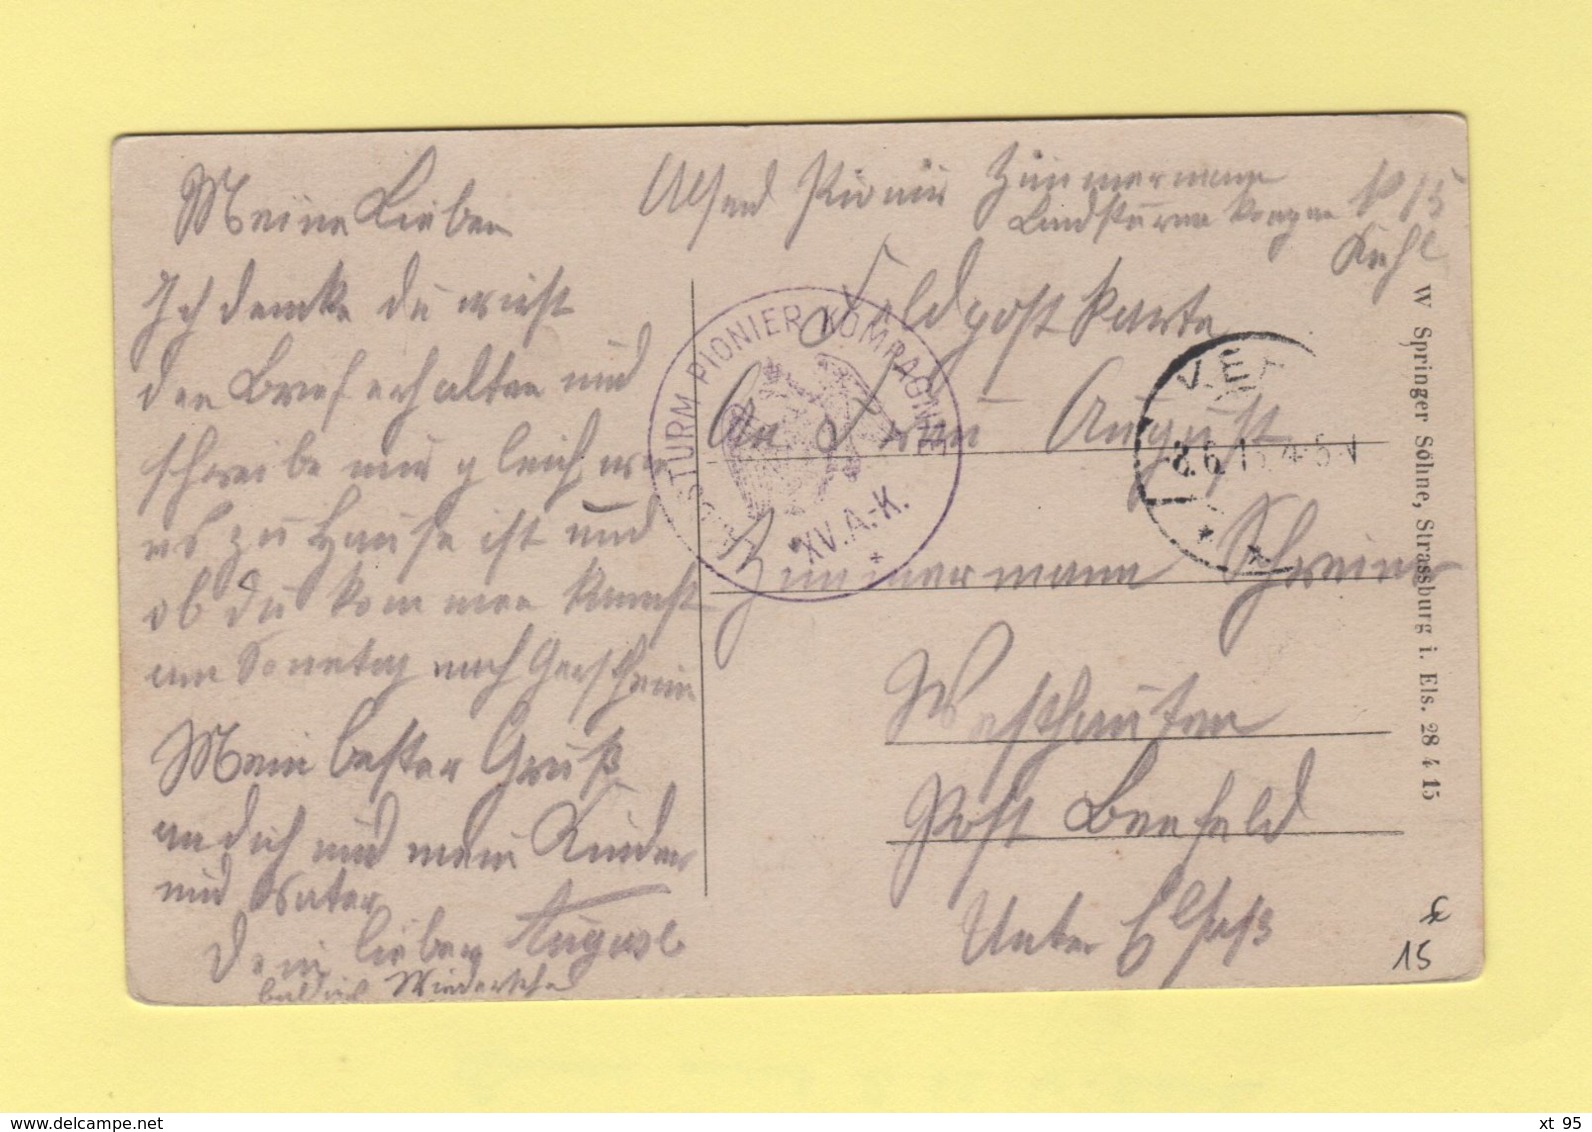 Meine Lieben
Ich denke du wirst
den Brief erhalten und
schreibe mir gleich wie
es zu Hause ist und
ob du kommen kannst
am Sonntag nach Gerstheim
Mein bester Gruß
an dich und mein Kinder
und Vater
Dein lieber August
baldig Wiedersehn
Absend Pionier Zimmermann
Landsturm Kompn XV
Kehl
Feldpostkarte
An Frau August
Zimmermann Schreiner
Westhausen
Post Benfeld
Unter Elsaß
STURM PIONIER KOMPAGNIE
XV. A.-K.
8.6.15. 4-5 N
W Springer Söhne, Strassburg i. Els. 28 4 15
15
delcampe.net
xt 95